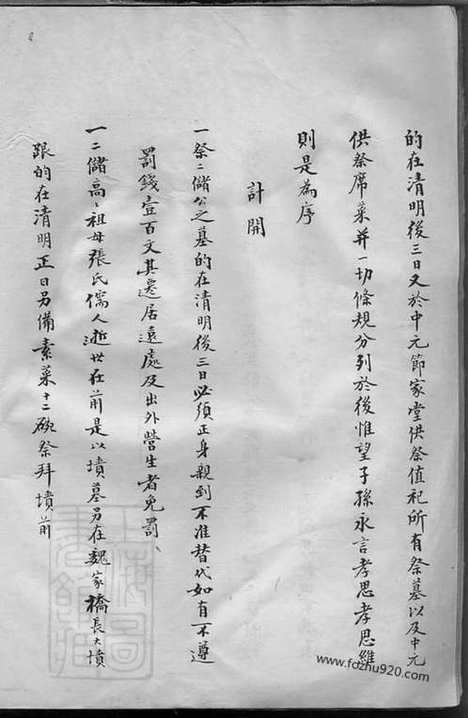 的在清明後三日又於中元節家堂供祭值祀所有祭墓以及中元
供祭席菜并一切條規分列於後惟望子孫永言孝思孝思維
則是為序
計開
一祭二儲公之墓的在清明後三日必須正身親到不准替代如有不遵
罰錢壹百文其遷居遠處及出外營生者免罰
一二儲高〻祖母張氏儒人逝世在前是以墳墓另在魏家橋長大墳
跟的在清明正日另備素菜十二碗祭拜墳前
www.fozhu920.com